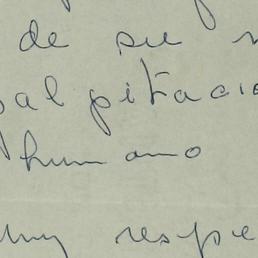 de su
palpitacio
humano
muy respe